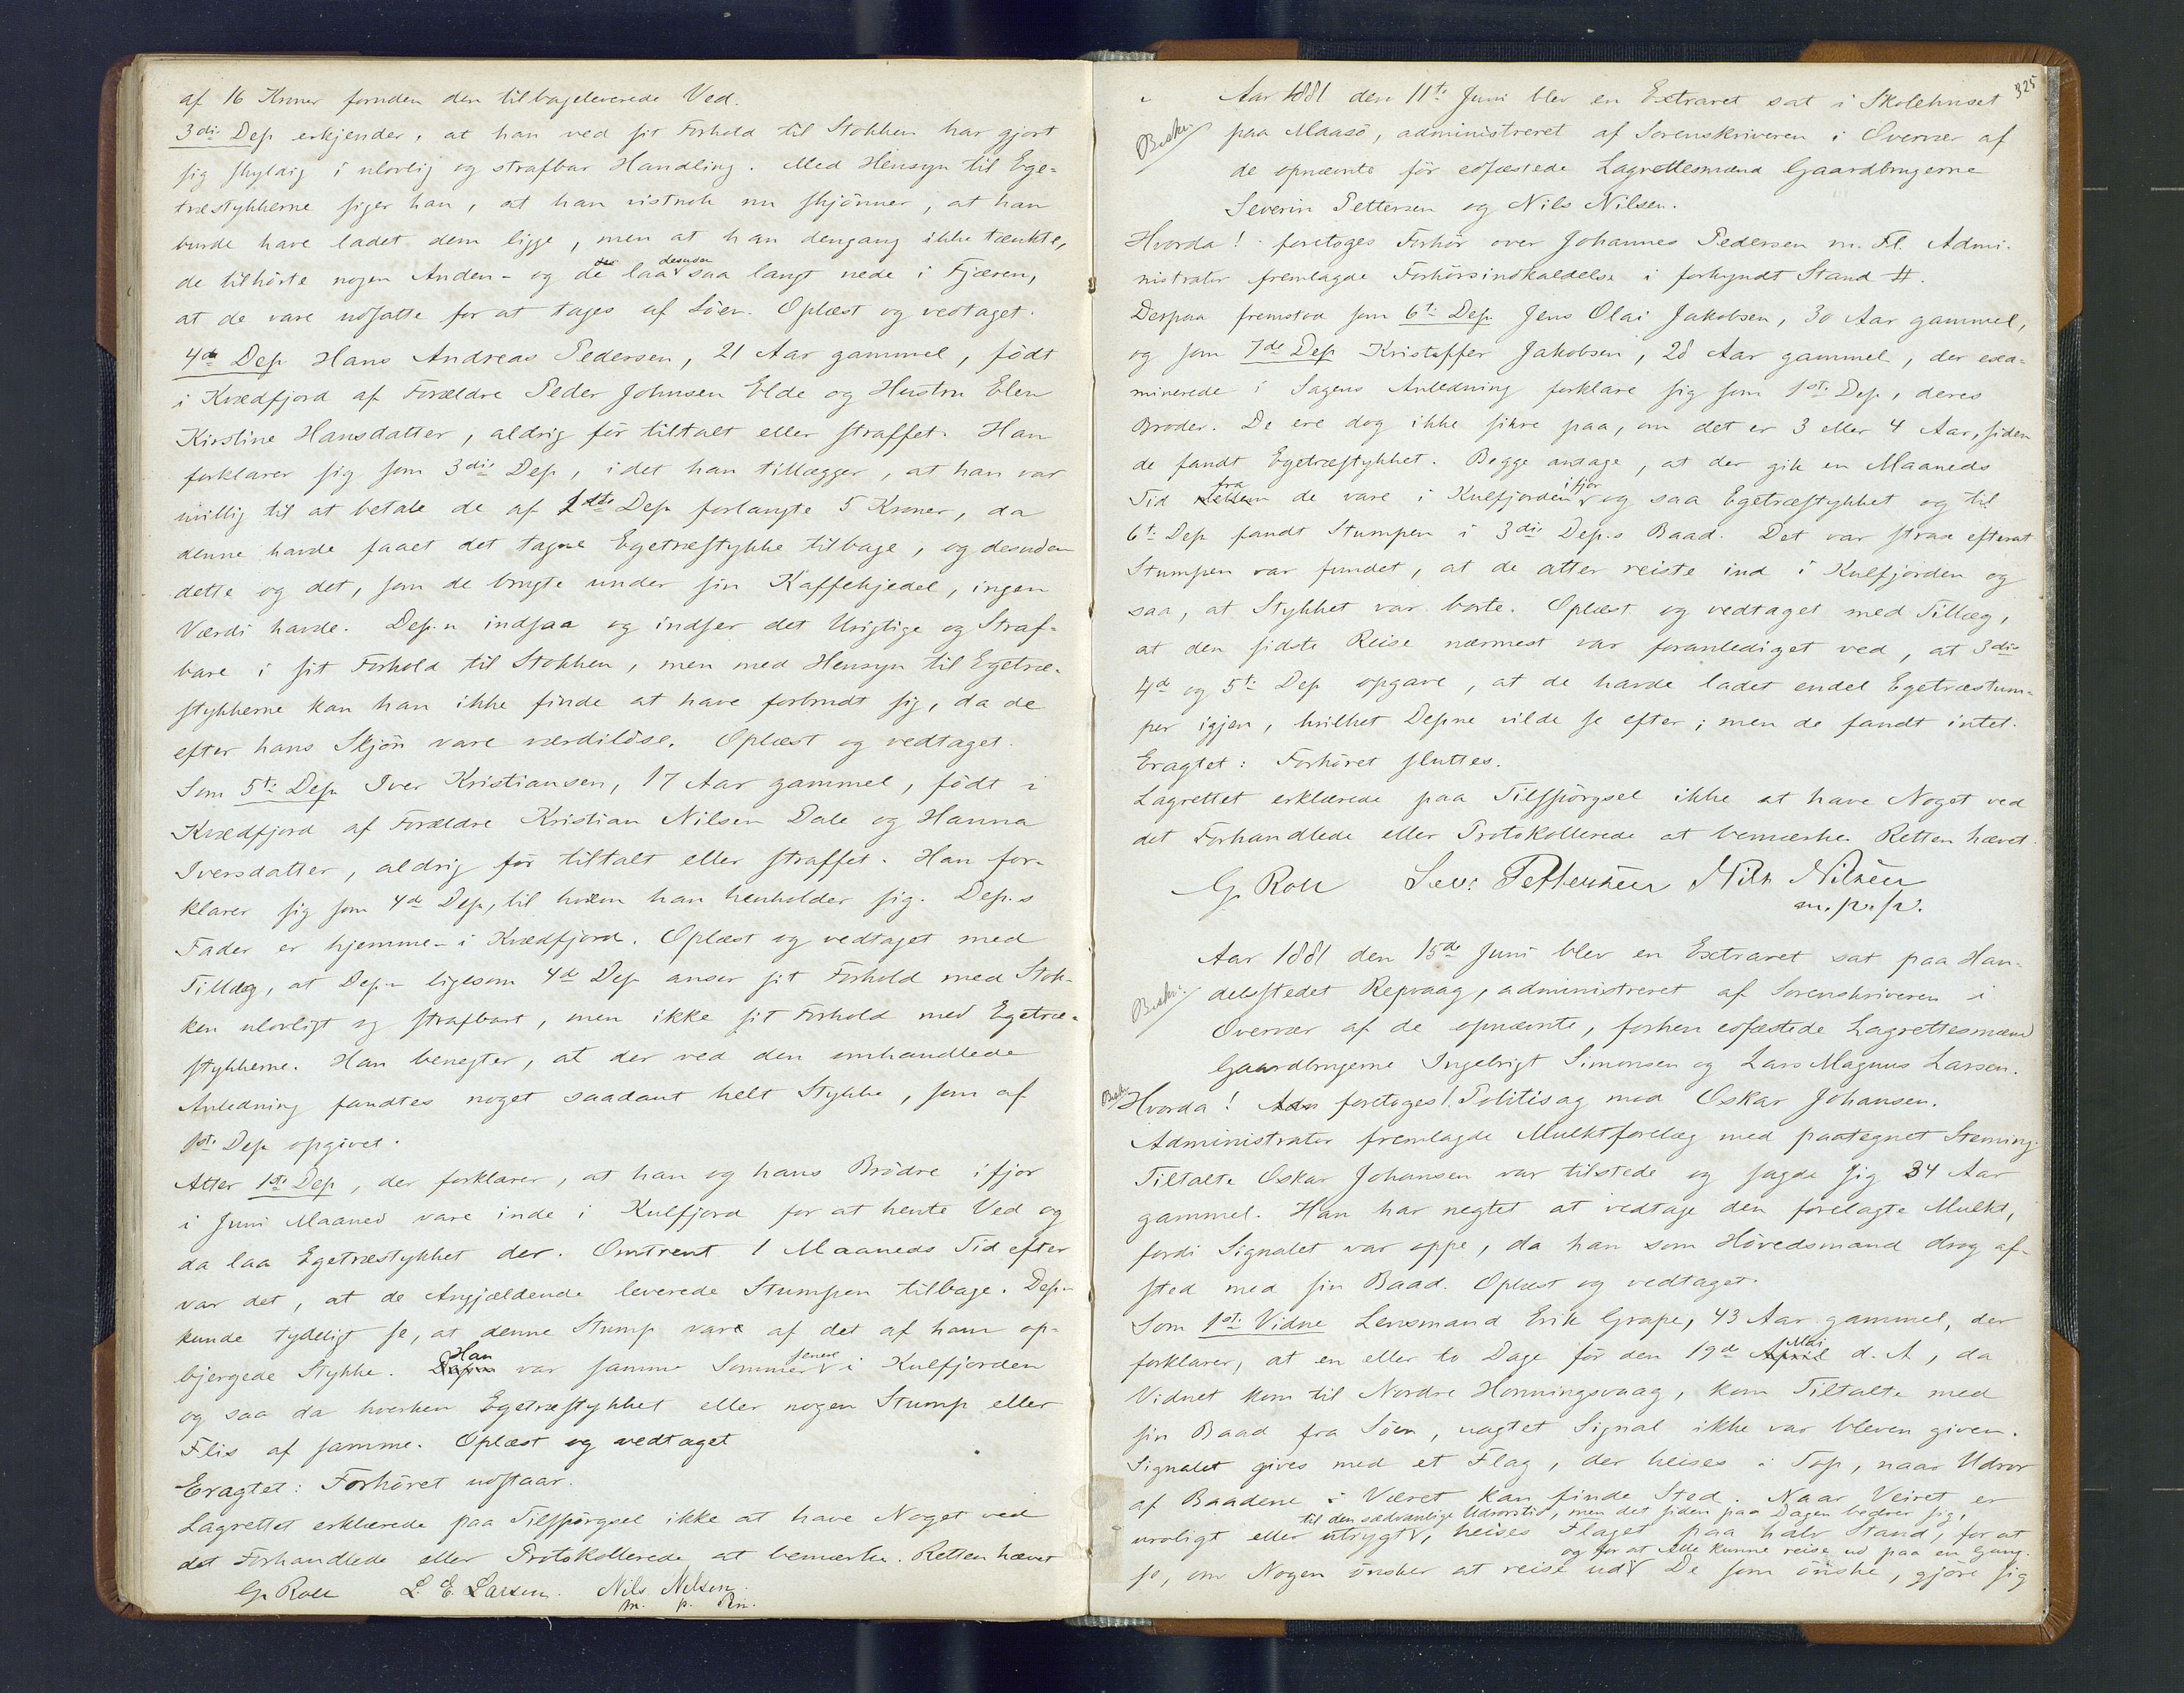 af 16 Kroner foruden den tilbageleverede Ved.
3die Dep erkjender, at han ved sit Forhold til Stokken har gjort
sig skyldig i ulovlig og strafbar Handling. Med Hensyn til Ege-
træstykkerne siger han, at han vistnok nu skjønner, at han
burde have ladet dem ligge, men at han dengang ikke tænkte,
de tilhörte nogen Anden - og de laa desuden saa langt nede i Fjæren,
at de vare udsatte for at tages af Söen. Oplæst og vedtaget.
4de Dep Hans Andreas Pedersen, 21 Aar gammel, födt
i Kvædfjord af Forældre Peder Johnsen Elde og Hustru Elen
Kirstine Hansdatter, aldrig för tiltalt eller straffet. Han
forklarer sig som 3die Dep, idet han tillægger, at han var
villig til at betale de af 1ste Dep forlangte 5 Kroner, da
denne havde faaet det tagne Egetræstykke tilbage, og desuden
dette og det, som de brugte under sin Kaffekjedel, ingen
Værdi havde. Dep.n indsaa og indser det Urigtige og Straf-
bare i sit Forhold til Stokken, men med Hensyn til Egetræ-
stykkerne kan han ikke finde at have forbrudt sig, da de
efter hans Skjön vare værdilöse. Oplæst og vedtaget.
Som 5te Dep Iver Kristiansen, 17 Aar gammel, födt i
Kvædfjord af Forældre Kristian Nilsen Dale og Hanna
Iversdatter, aldrig för tiltalt eller straffet. Han for-
klarer sig som 4de Dep, til hvem han henholder sig. Dep.s
Fader er hjemme i Kvædfjord. Oplæst og vedtaget med
Tillæg, at Dep.n ligesom 4de Dep anser sit Forhold med Stok-
ken ulovligt og strafbart, men ikke sit Forhold med Egetræ-
stykkerne. Han benegter, at der ved den omhandlede
Anledning fandtes noget saadant helt Stykke, som af
1ste Dep opgivet.
Atter 1ste Dep, der forklarer, at han og hans Brödre ifjor
i Juni Maaned vare inde i Kulfjord for at hente Ved og
da laa Egetræstykket der. Omtrent 1 Maaneds Tid efter
var det, at de Angjældende leverede Stumpen tilbage. Dep.n
kunde tydeligt se, at denne Stump var af det af ham op-
bjergede Stykke. Han var samme Sommer senere i Kulfjorden
og saa da hverken Egetræstykket eller nogen Stump eller
Flis af samme. Oplæst og vedtaget
Eragtet: Forhöret udstaar.
Lagrettet erklærede paa Tilspörgsel ikke at have Noget ved
det Forhandlede eller Protokollerede at bemærke. Retten hævet
G. Roll L. E. Larsen. Nils Nilsen.
m. p. Pen.
325
Aar 1881 den 11te Juni blev en Extraret sat i Skolehuset
Beskr.
paa Maasö, administreret af Sorenskriveren i Overvær af
de opnævnte för edfæstede Lagrettesmænd Gaardbrugerne
Severin Pettersen og Nils Nilsen.
Hvorda! foretoges Forhör over Johannes Pedersen m. Fl. Admi-
nistrator fremlagde Forhörsindkaldelse i forkyndt Stand #.
Derpaa fremstod som 6te Dep Jens Olai Jakobsen, 30 Aar gammel,
og som 7de Dep Kristoffer Jakobsen, 28 Aar gammel, der exa-
minerede i Sagens Anledning forklare sig som 1ste Dep, deres
Broder. De ere dog ikke sikre paa, om det er 3 eller 4 Aar, siden
de fandt Egetræstykket. Begge antage, at der gik en Maaneds
Tid fra de vare i Kulfjorden ifjor og saa Egetræstykket og til
6te Dep fandt Stumpen i 3die Dep.s Baad. Det var strax efterat
Stumpen var fundet, at de atter reiste ind i Kulfjorden og
saa, at Stykket var borte. Oplæst og vedtaget med Tillæg,
at den sidste Reise nærmest var foranlediget ved, at 3die
4de og 5te Dep opgave, at de havde ladet endel Egetræstum-
per igjen, hvilket Depne vilde se efter; men de fandt intet.
Eragtet: Forhöret sluttes.
Lagrettet erklærede paa Tilspörgsel ikke at have Noget ved
det Forhandlede eller Protokollerede at bemærke. Retten hævet.
G. Roll Sev: Pettersen Nils Nilsen
m. p. p.
Aar 1881 den 15de Juni blev en Extraret sat paa Han-
Beskr.
delsstedet Repvaag, administreret af Sorenskriveren i
Overvær af de opnævnte, forhen edfæstede Lagrettesmænd
Gaardbrugerne Ingebrigt Simonsen og Lars Magnus Larsen.
Beskr.
Hvorda! foretoges Politisag mod Oskar Johansen.
Administrator fremlagde Mulktforelæg med paategnet Stævning.
Tiltalte Oskar Johansen var tilstede og sagde sig 34 Aar
gammel. Han har negtet at vedtage den forelagte Mulkt,
fordi Signalet var oppe, da han som Hövedsmand drog af-
sted med sin Baad. Oplæst og vedtaget.
Som 1ste Vidne Lensmand Erik Grape, 43 Aar gammel, der
forklarer, at en eller to Dage för den 19de Mai d. A, da
Vidnet kom til Nordre Honningsvaag, kom Tiltalte med
sin Baad fra Söen, uagtet Signal ikke var bleven given.
Signalet gives med et Flag, der heises i Top, naar Udror
af Baadene i Været kan finde Sted. Naar Veiret er
til den sædvanlige Udrorstid, men det siden paa Dagen bedrer sig,
uroligt eller utrygt, heises Flaget paa halv Stand, for at
og for at Alle kunne reise ud paa en Gang.
se, om Nogen önsker at reise ud De som önske, gjöre sig